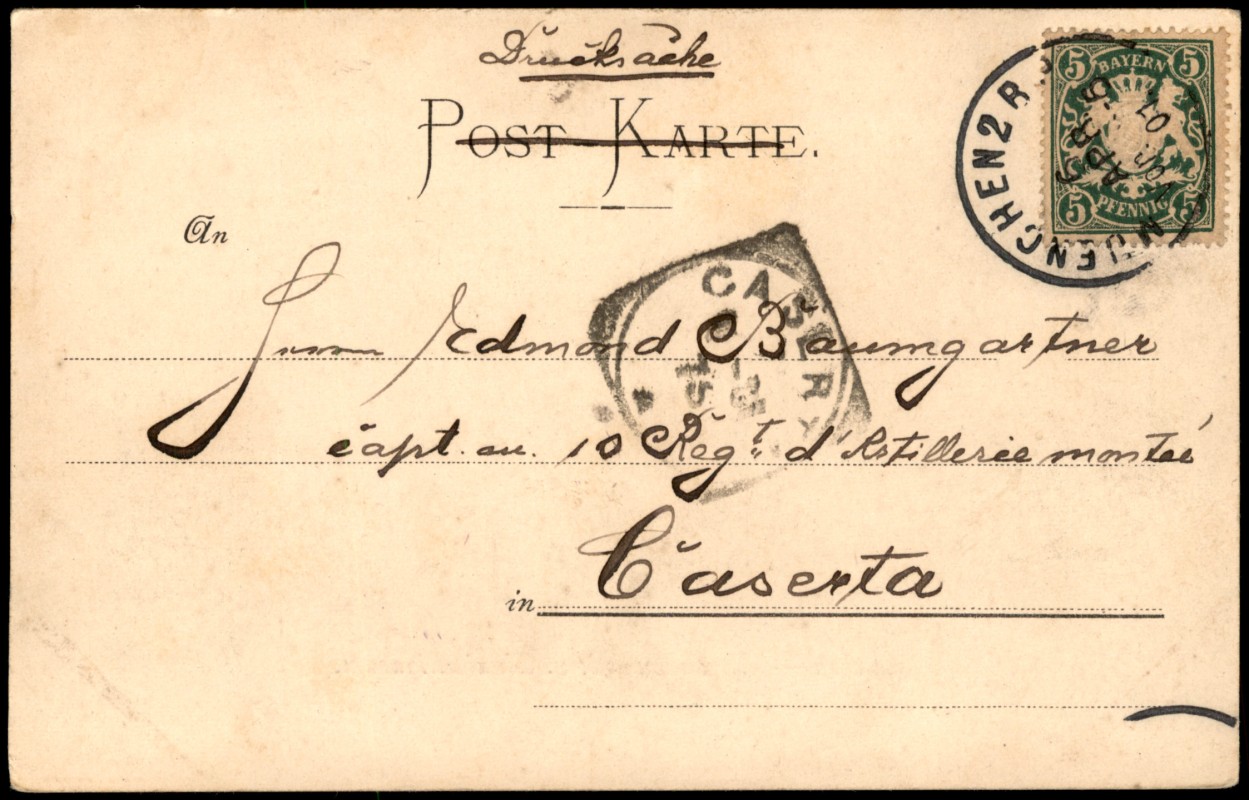 Drucksache
POST KARTE.
5 BAYERN 5
5 PFENNIG 5
MUENCHEN 2 B
APR 5
01
An
Herrn Edmond Baumgartner
CASERTA
capt. au. 10 Regt. d'Artillerie montée
in Caserta